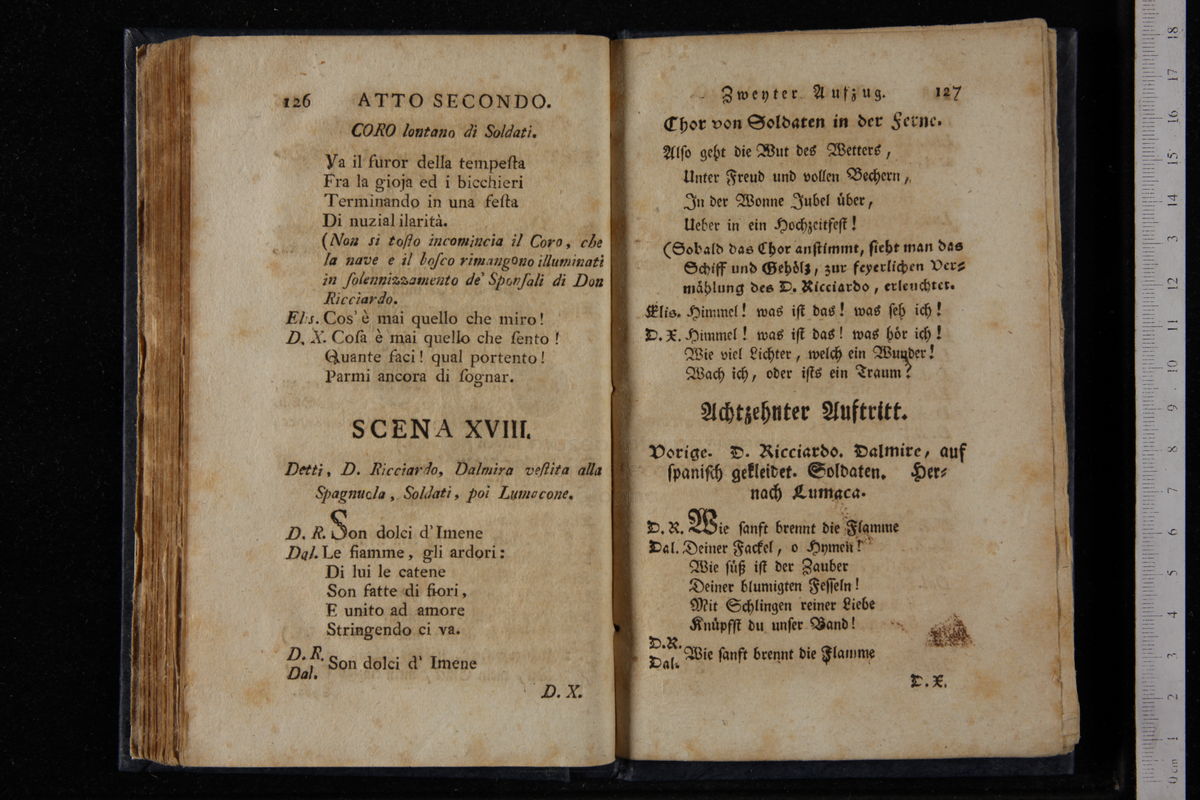 126 ATTO SECONDO.
CORO lontano di Soldati.
Va il furor della tempeſta
Fra la gioja ed i bicchieri
Terminando in una feſta
Di nuzial ilarità.
(Non si toſto incomincia il Coro, che
la nave e il boſco rimangono illuminati
in ſolennizzamento de' Sponſali di Don
Ricciardo.
Elis. Cos' è mai quello che miro!
D. X. Coſa è mai quello che ſento!
Quante faci! qual portento!
Parmi ancora di ſognar.
SCENA XVIII.
Detti, D. Ricciardo, Dalmira veſtita alla
Spagnuola, Soldati, poi Lumacone.
D. R. Son dolci d'Imene
Dal. Le fiamme, gli ardori:
Di lui le catene
Son fatte di fiori,
E unito ad amore
Stringendo ci va.
D. R.
Dal. Son dolci d' Imene
D. X.
Zweyter Aufzug. 127
Chor von Soldaten in der Ferne.
Alſo geht die Wut des Wetters,
Unter Freud und vollen Bechern,
In der Wonne Jubel über,
Ueber in ein Hochzeitfeſt!
(Sobald das Chor anſtimmt, ſieht man das
Schiff und Gehölz, zur feyerlichen Ver⸗
mählung des D. Ricciardo, erleuchtet.
Elis. Himmel! was iſt das! was ſeh ich!
D. X. Himmel! was iſt das! was hör ich!
Wie viel Lichter, welch ein Wunder!
Wach ich, oder iſts ein Traum?
Achtzehnter Auftritt.
Vorige. D. Ricciardo. Dalmire, auf
ſpaniſch gekleidet. Soldaten. Her⸗
nach Lumaca.
D. R. Wie ſanft brennt die Flamme
Dal. Deiner Fackel, o Hymen!
Wie ſüß iſt der Zauber
Deiner blumigten Feſſeln!
Mit Schlingen reiner Liebe
Knüpfſt du unſer Band!
D. R.
Dal. Wie ſanft brennt die Flamme
D. X.
0 cm 1 2 3 4 5 6 7 8 9 10 11 12 13 14 15 16 17 18